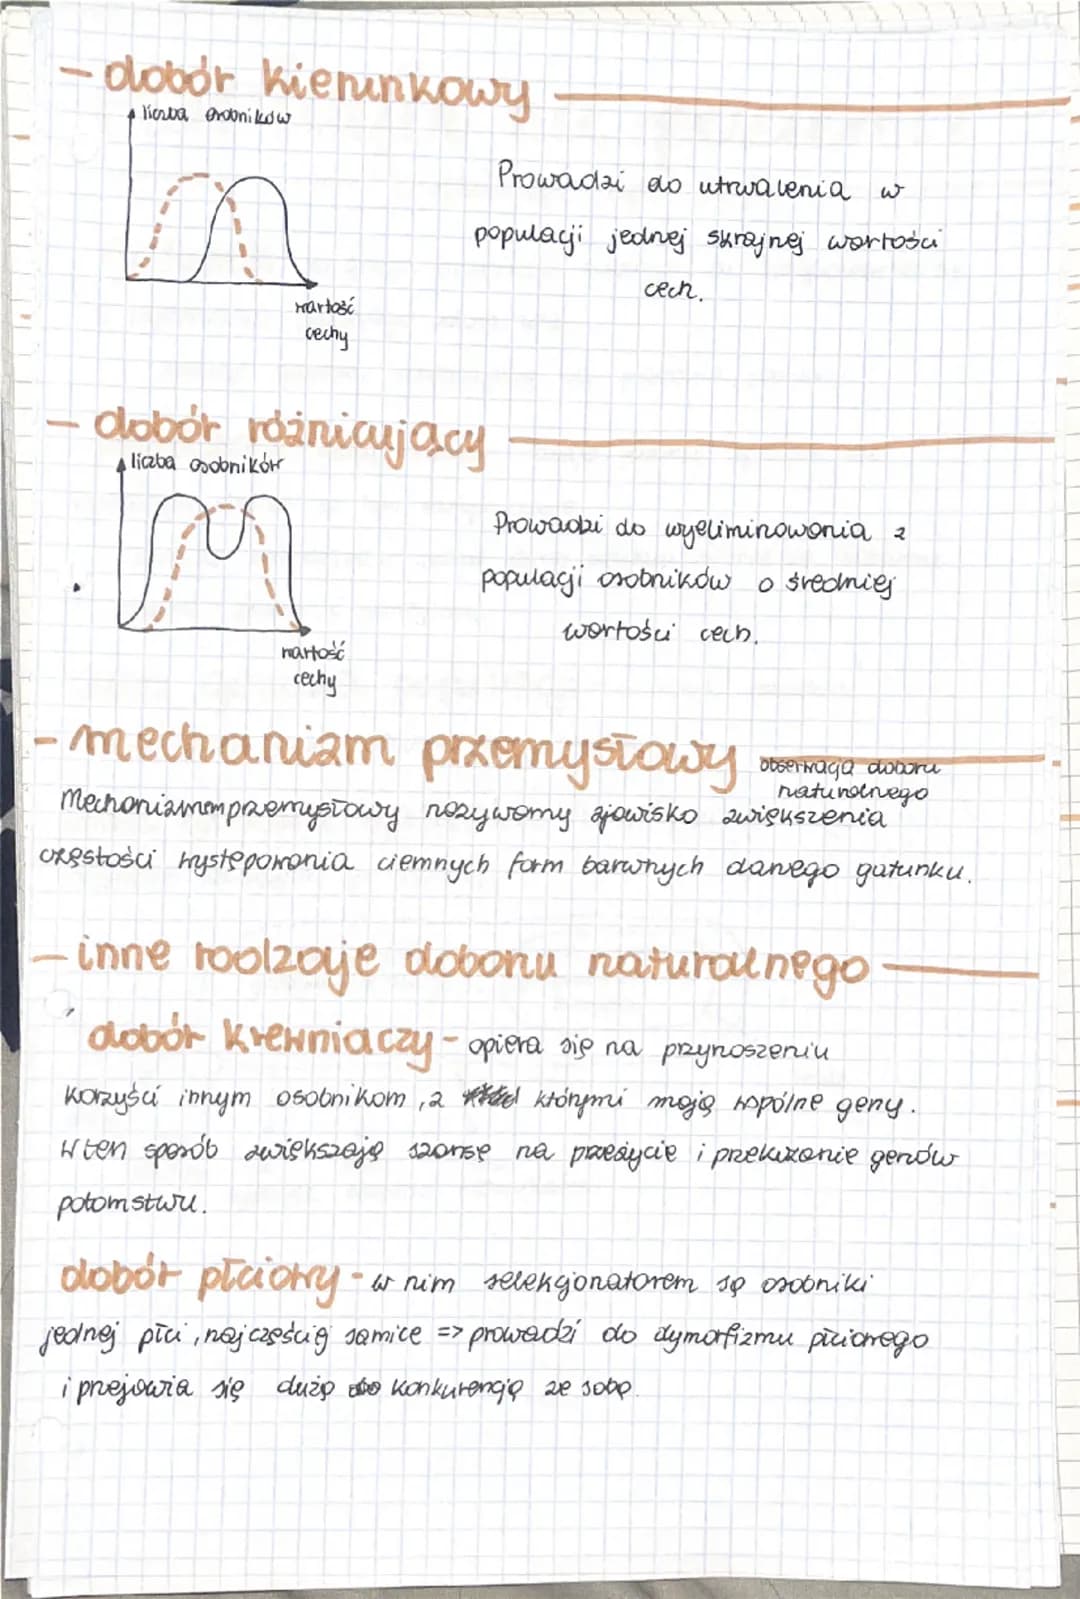 - dobór kierunkowy
liczba osobników
Prowadzi do utrwalenia w
populacji jednej skrajnej wartości
cech.
wartość
cechy
- dobór różnicujący
liczba osobników
Prowadzi do wyeliminowania z
populacji osobników o średniej
wartości cech.
wartość
cechy
- mechanizm przemysłowy obserwacja doboru
naturalnego
Mechanizmem przemysłowy nazywamy zjawisko zwiększenia
częstości występowania ciemnych form barwnych danego gatunku.
- inne rodzaje doboru naturalnego
dobór krewniaczy - opiera się na przynoszeniu
korzyści innym osobnikom, z którymi mają wspólne geny.
W ten sposób zwiększają szansę na przeżycie i przekazanie genów
potomstwu.
dobór płciowy - w nim selekcjonatorem są osobniki
jednej płci, najczęściej samice => prowadzi do dymorfizmu płciowego
i przejawia się dużą konkurencją ze sobą.